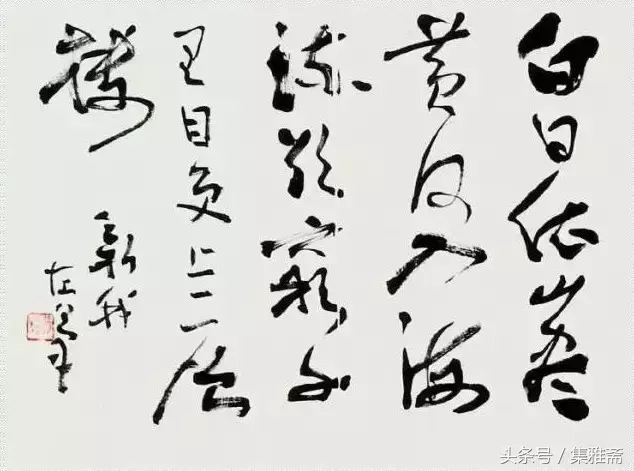 白日依山尽
黄河入海
流欲窮千
里目更上一层
楼
新我
左笔
头条号/集雅斋